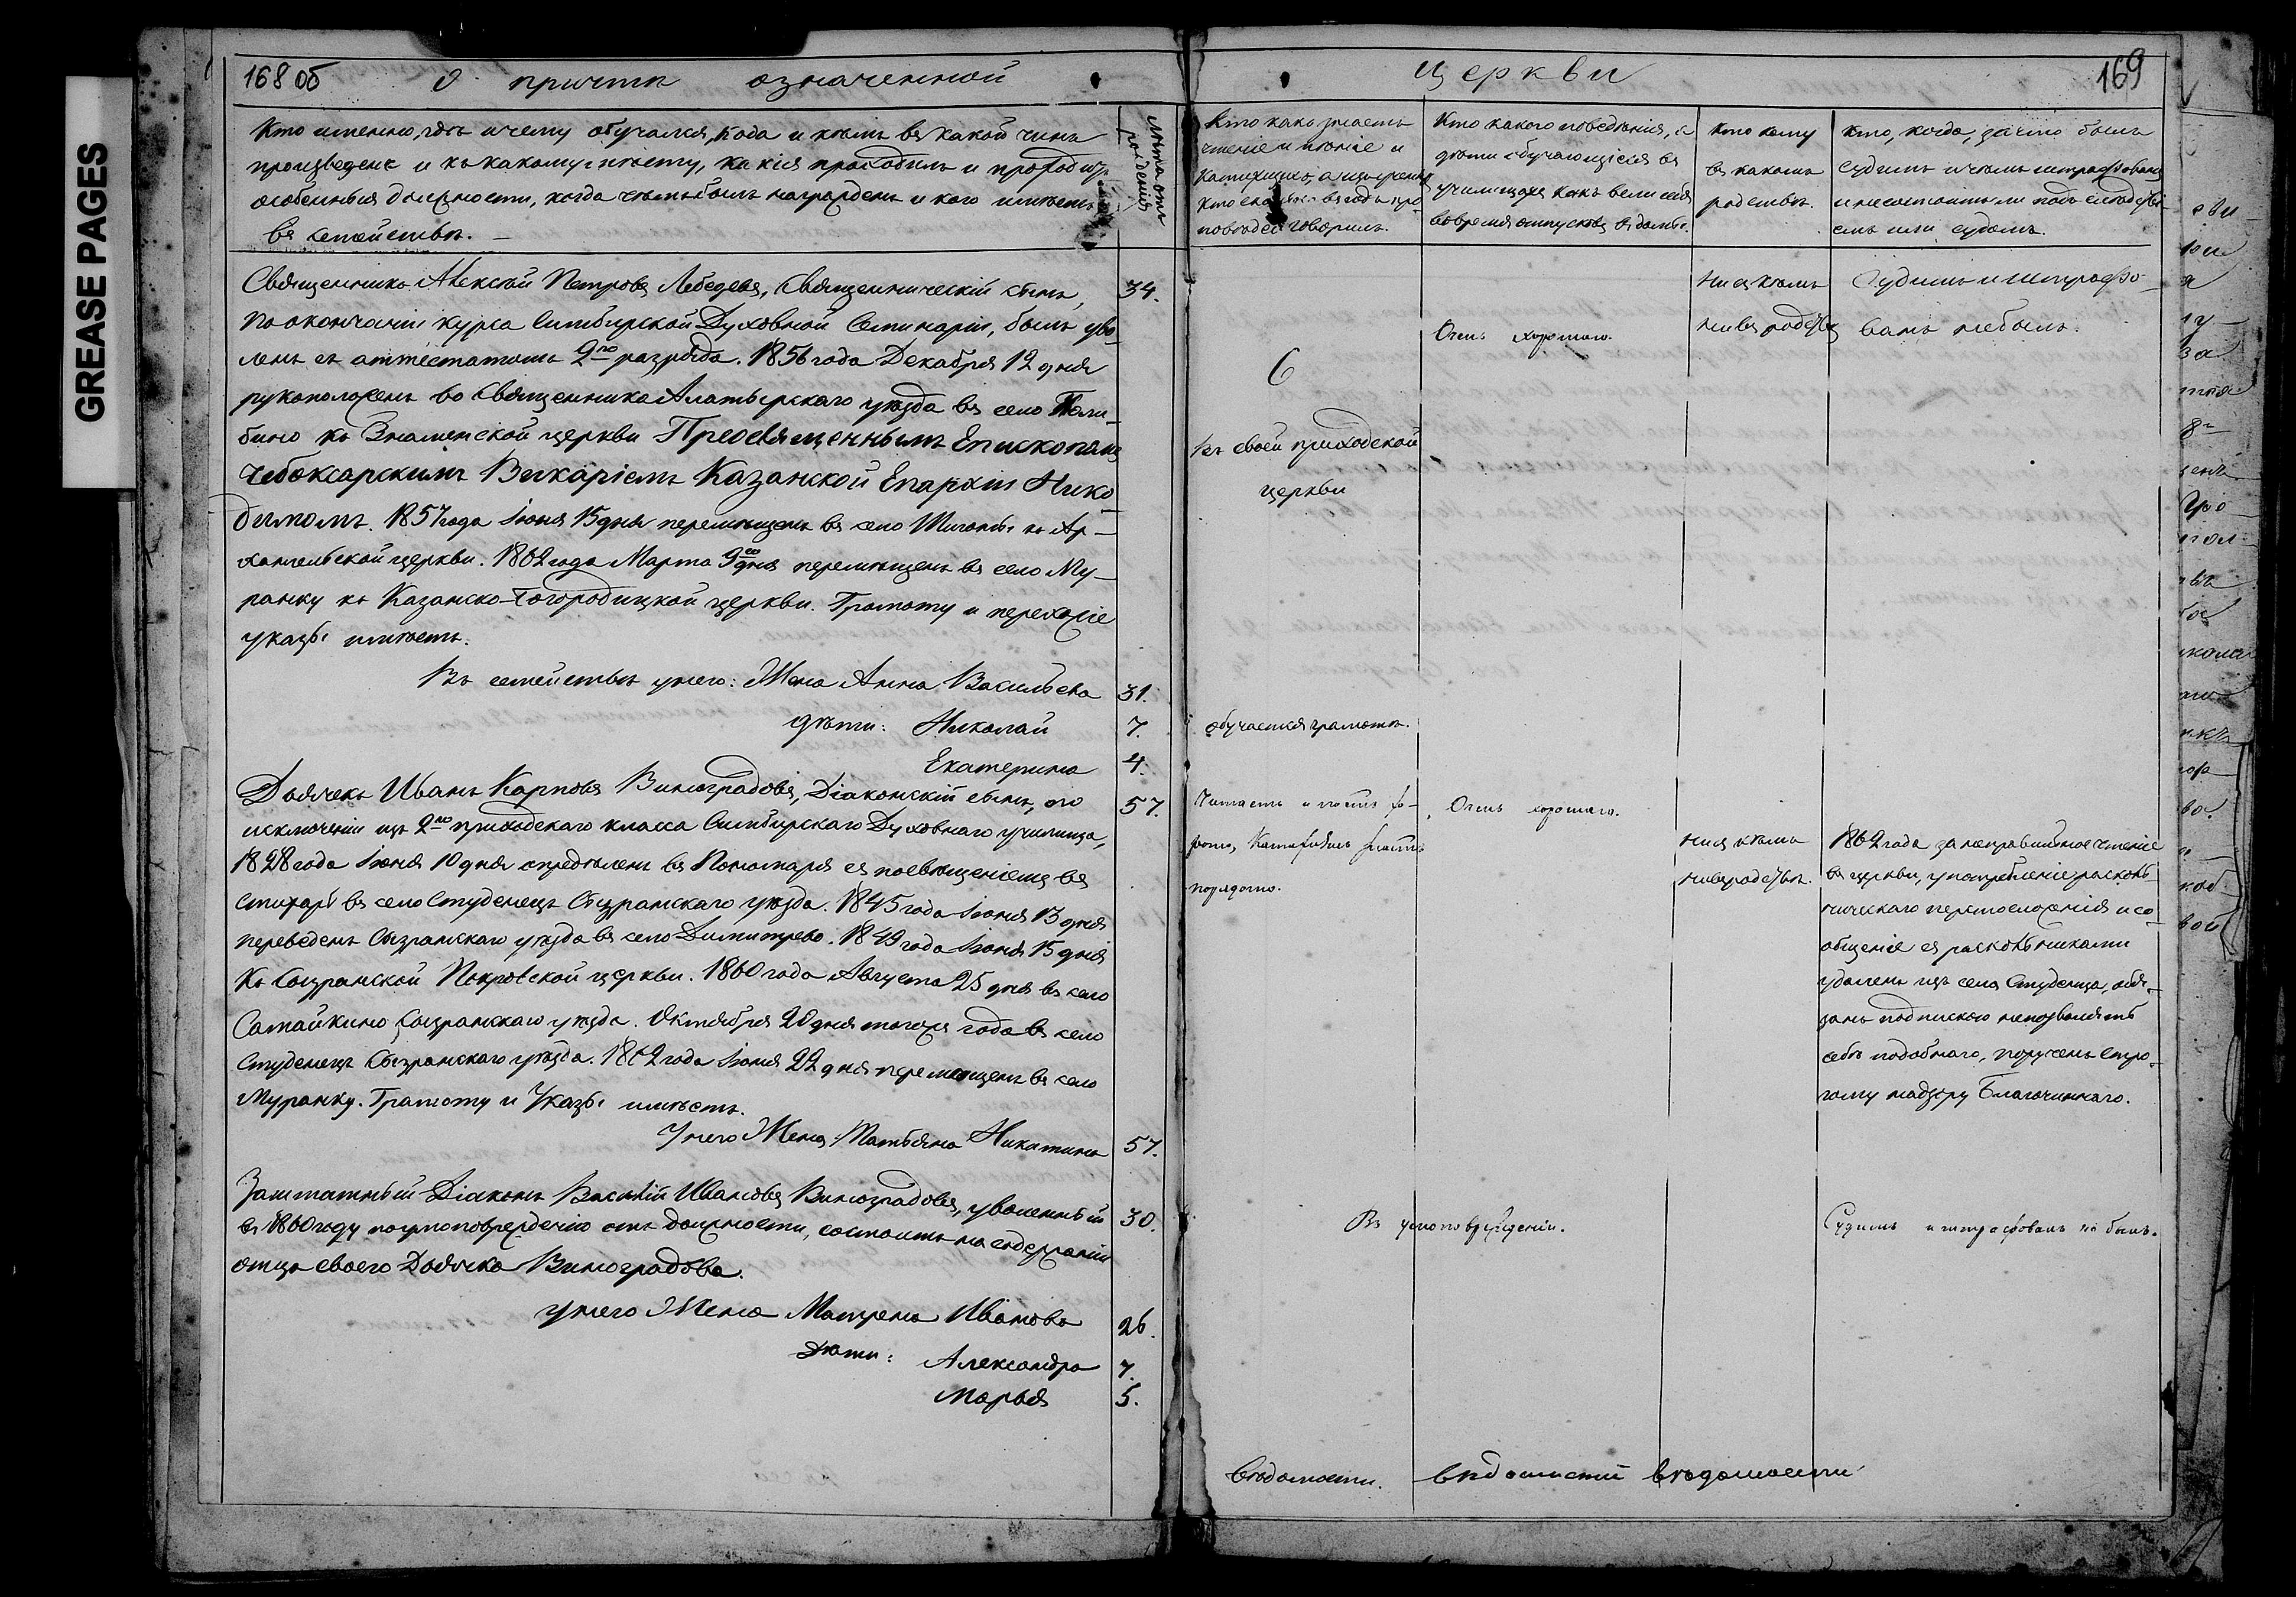 GREASE PAGES
168 об
О причтѣ означенной
церкви
169
Кто именно, гдѣ и чему обучался, когда и кѣмъ въ какой чинъ
произведенъ и къ какому мѣсту, какія проходилъ и проходитъ
особенныя должности, когда чѣмъ былъ награжденъ и кого имѣетъ
въ семействѣ.
Лѣта отъ
рожденія
Кто какъ знаетъ
чтеніе и пѣніе и
Катихизисъ, а изъ учены
кто сколько въ годъ про
повѣдей говорилъ.
Кто какого поведенія, а
дѣти обучающіеся въ
училищахъ какъ вели себя
во время отпусковъ въ домы.
Кто кому
въ какомъ
родствѣ.
Кто, когда, за что былъ
судимъ и чѣмъ штрафованъ
и не состоитъ ли подъ слѣдстві
емъ или судомъ.
Священникъ Алексѣй Петровъ Лебедевъ, Священническій сынъ, 34.
по окончаніи курса Симбирской Духовной Семинаріи, былъ уво
ленъ съ аттестатомъ 2го разряда. 1856 года Декабря 12 дня
рукоположенъ во Священника Алатырскаго уѣзда въ село Поли
бино къ Знаменской церкви Преосвященнымъ Епископомъ
Чебоксарскимъ Викаріемъ Казанской Епархіи Нико
димомъ. 1857 года Іюня 15 дня перемѣщенъ въ село Шигоны къ Ар
хангельской церкви. 1862 года Марта 9го дня перемѣщенъ въ село Му
ранку къ Казанско-Богородицкой церкви. Грамоту и перехожіе
указы имѣетъ.
Въ семействѣ у него: Жена Анна Васильева 31.
дѣти: Николай 7.
Екатерина 4.
6
въ своей приходской
церкви
Очень хорошаго.
Ни съ кѣмъ
ни въ родствѣ
Судимъ и штрафо
ванъ не былъ.
обучается грамотѣ.
Дьячекъ Иванъ Карповъ Виноградовъ, Діаконскій сынъ, по 57.
исключеніи изъ 2го приходскаго класса Симбирскаго Духовнаго училища,
1828 года Іюня 10 дня опредѣленъ въ Пономаря съ посвященіемъ въ
стихарь въ село Студенецъ Сызранскаго уѣзда. 1845 года Іюня 13 дня
переведенъ Сызранскаго уѣзда въ село Димитрево. 1849 года Іюня 15 дня
къ Сызранской Покровской церкви. 1860 года Августа 25 дня въ село
Самайкино Сызранскаго уѣзда. Октября 20 дня тогоже года въ село
Студенецъ Сызранскаго уѣзда. 1862 года Іюня 22 дня перемѣщенъ въ село
Муранку. Грамоту и Указы имѣетъ.
У него Жена Татьяна Никитина 57.
Читаетъ и поетъ хо
рошо, Катихизисъ знаетъ
порядочно.
Очень хорошаго.
Ни съ кѣмъ
ни въ родствѣ.
1862 года за неправильное чтеніе
въ церкви, употребленіе расколь
ническаго перстосложенія и со
общеніе съ раскольниками
удаленъ изъ села Студенца, обя
занъ подпискою не позволять
себѣ подобнаго, порученъ стро
гому надзору Благочиннаго.
Заштатный Діаконъ Василій Ивановъ Виноградовъ, уволенный 30.
въ 1860 году по умоповрежденію отъ должности, состоитъ на содержаніи
отца своего Дьячка Виноградова.
У него Жена Матрена Иванова 26.
Дѣти: Александра 7.
Марья 5.
Въ умоповрежденіи.
Судимъ и штрафованъ не былъ.
вѣдомости. вѣдомости вѣдомости